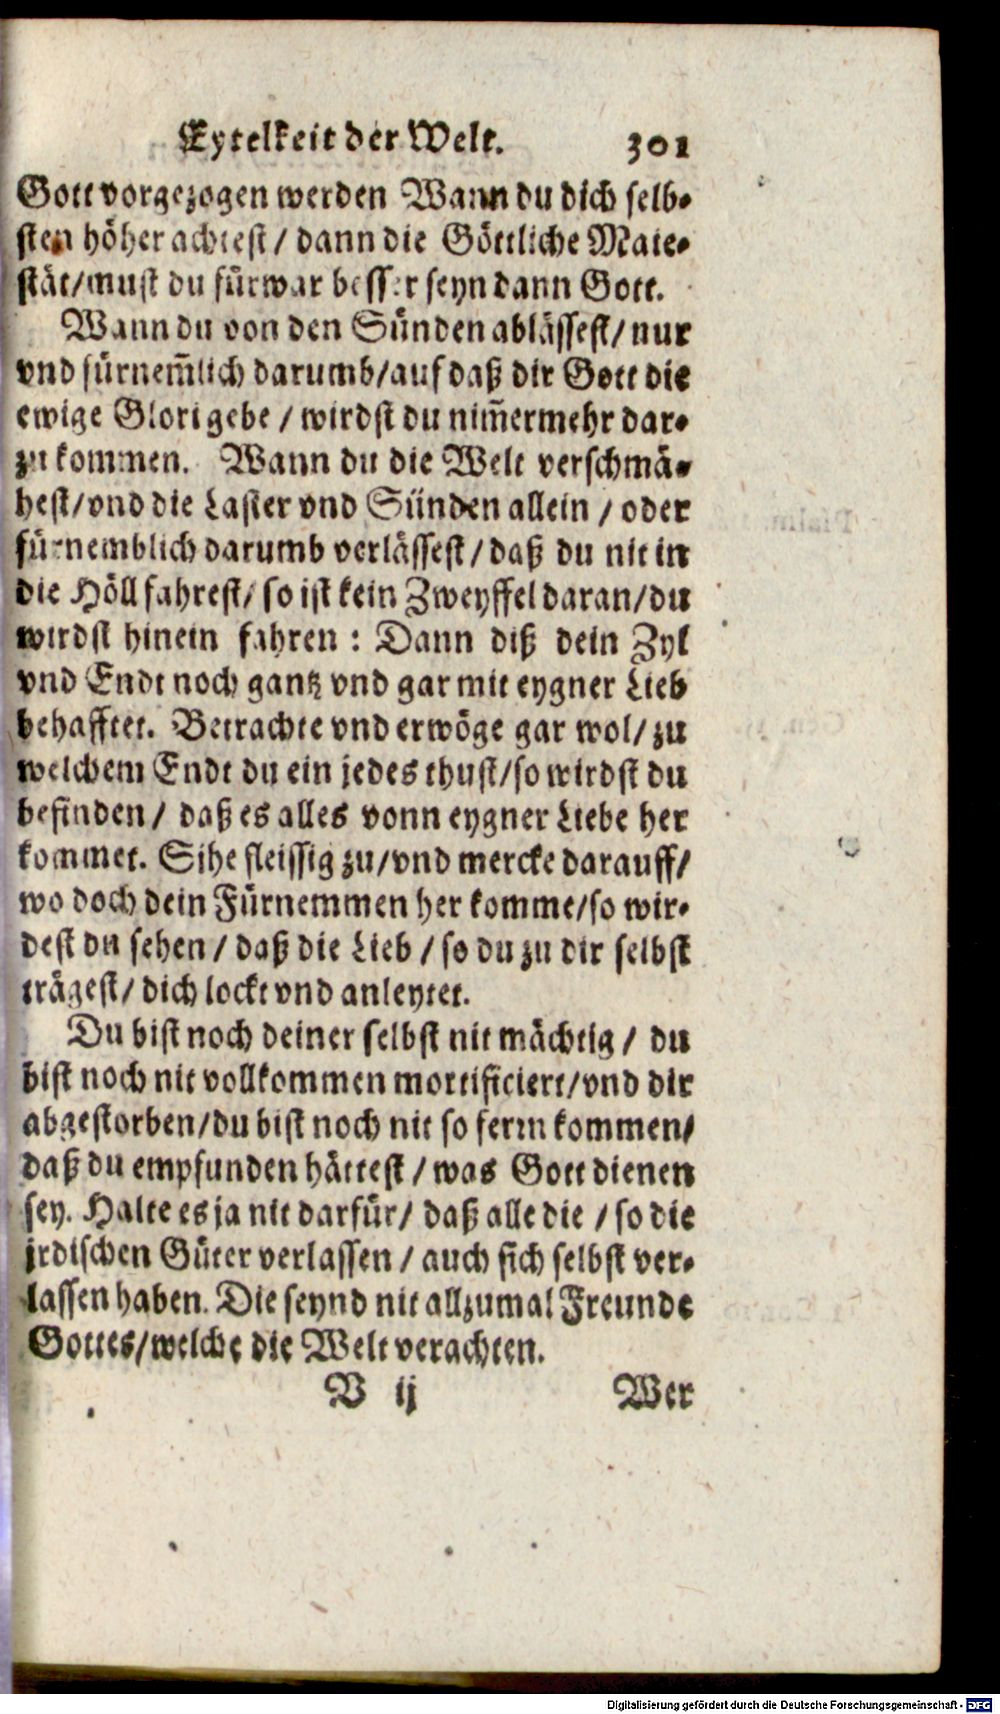 Eytelkeit der Welt. 301
Gott vorgezogen werden Wann du dich selb-
sten höher achtest / dann die Göttliche Maie-
stät/must du fürwar besser seyn dann Gott.
Wann du von den Sünden ablässest/ nur
vnd fürnem̃lich darumb/auf daß dir Gott die
ewige Glori gebe / wirdst du nim̃ermehr dar-
zu kommen. Wann du die Welt verschmä-
hest/vnd die Laster vnd Sünden allein / oder
fürnemblich darumb verlässest/ daß du nit in
die Höll fahrest/ so ist kein Zweyffel daran/du
wirdst hinein fahren : Dann diß dein Zyl
vnd Endt noch gantz vnd gar mit eygner Lieb
behafftet. Betrachte vnd erwöge gar wol/ zu
welchem Endt du ein jedes thust/so wirdst du
befinden/ daß es alles vonn eygner Liebe her
kommet. Sihe fleissig zu/vnd mercke darauff/
wo doch dein Fürnemmen her komme/so wir-
dest du sehen / daß die Lieb / so du zu dir selbst
trägest/ dich lockt vnd anleytet.
Du bist noch deiner selbst nit mächtig / du
bist noch nit vollkommen mortificiert/vnd dir
abgestorben/du bist noch nit so ferrn kommen/
daß du empfunden hättest / was Gott dienen
sey. Halte es ja nit darfür/ daß alle die / so die
jrdischen Güter verlassen / auch sich selbst ver-
lassen haben. Die seynd nit allzumal Freunde
Gottes/welche die Welt verachten.
V ij Wer
Digitalisierung gefördert durch die Deutsche Forschungsgemeinschaft - DFG